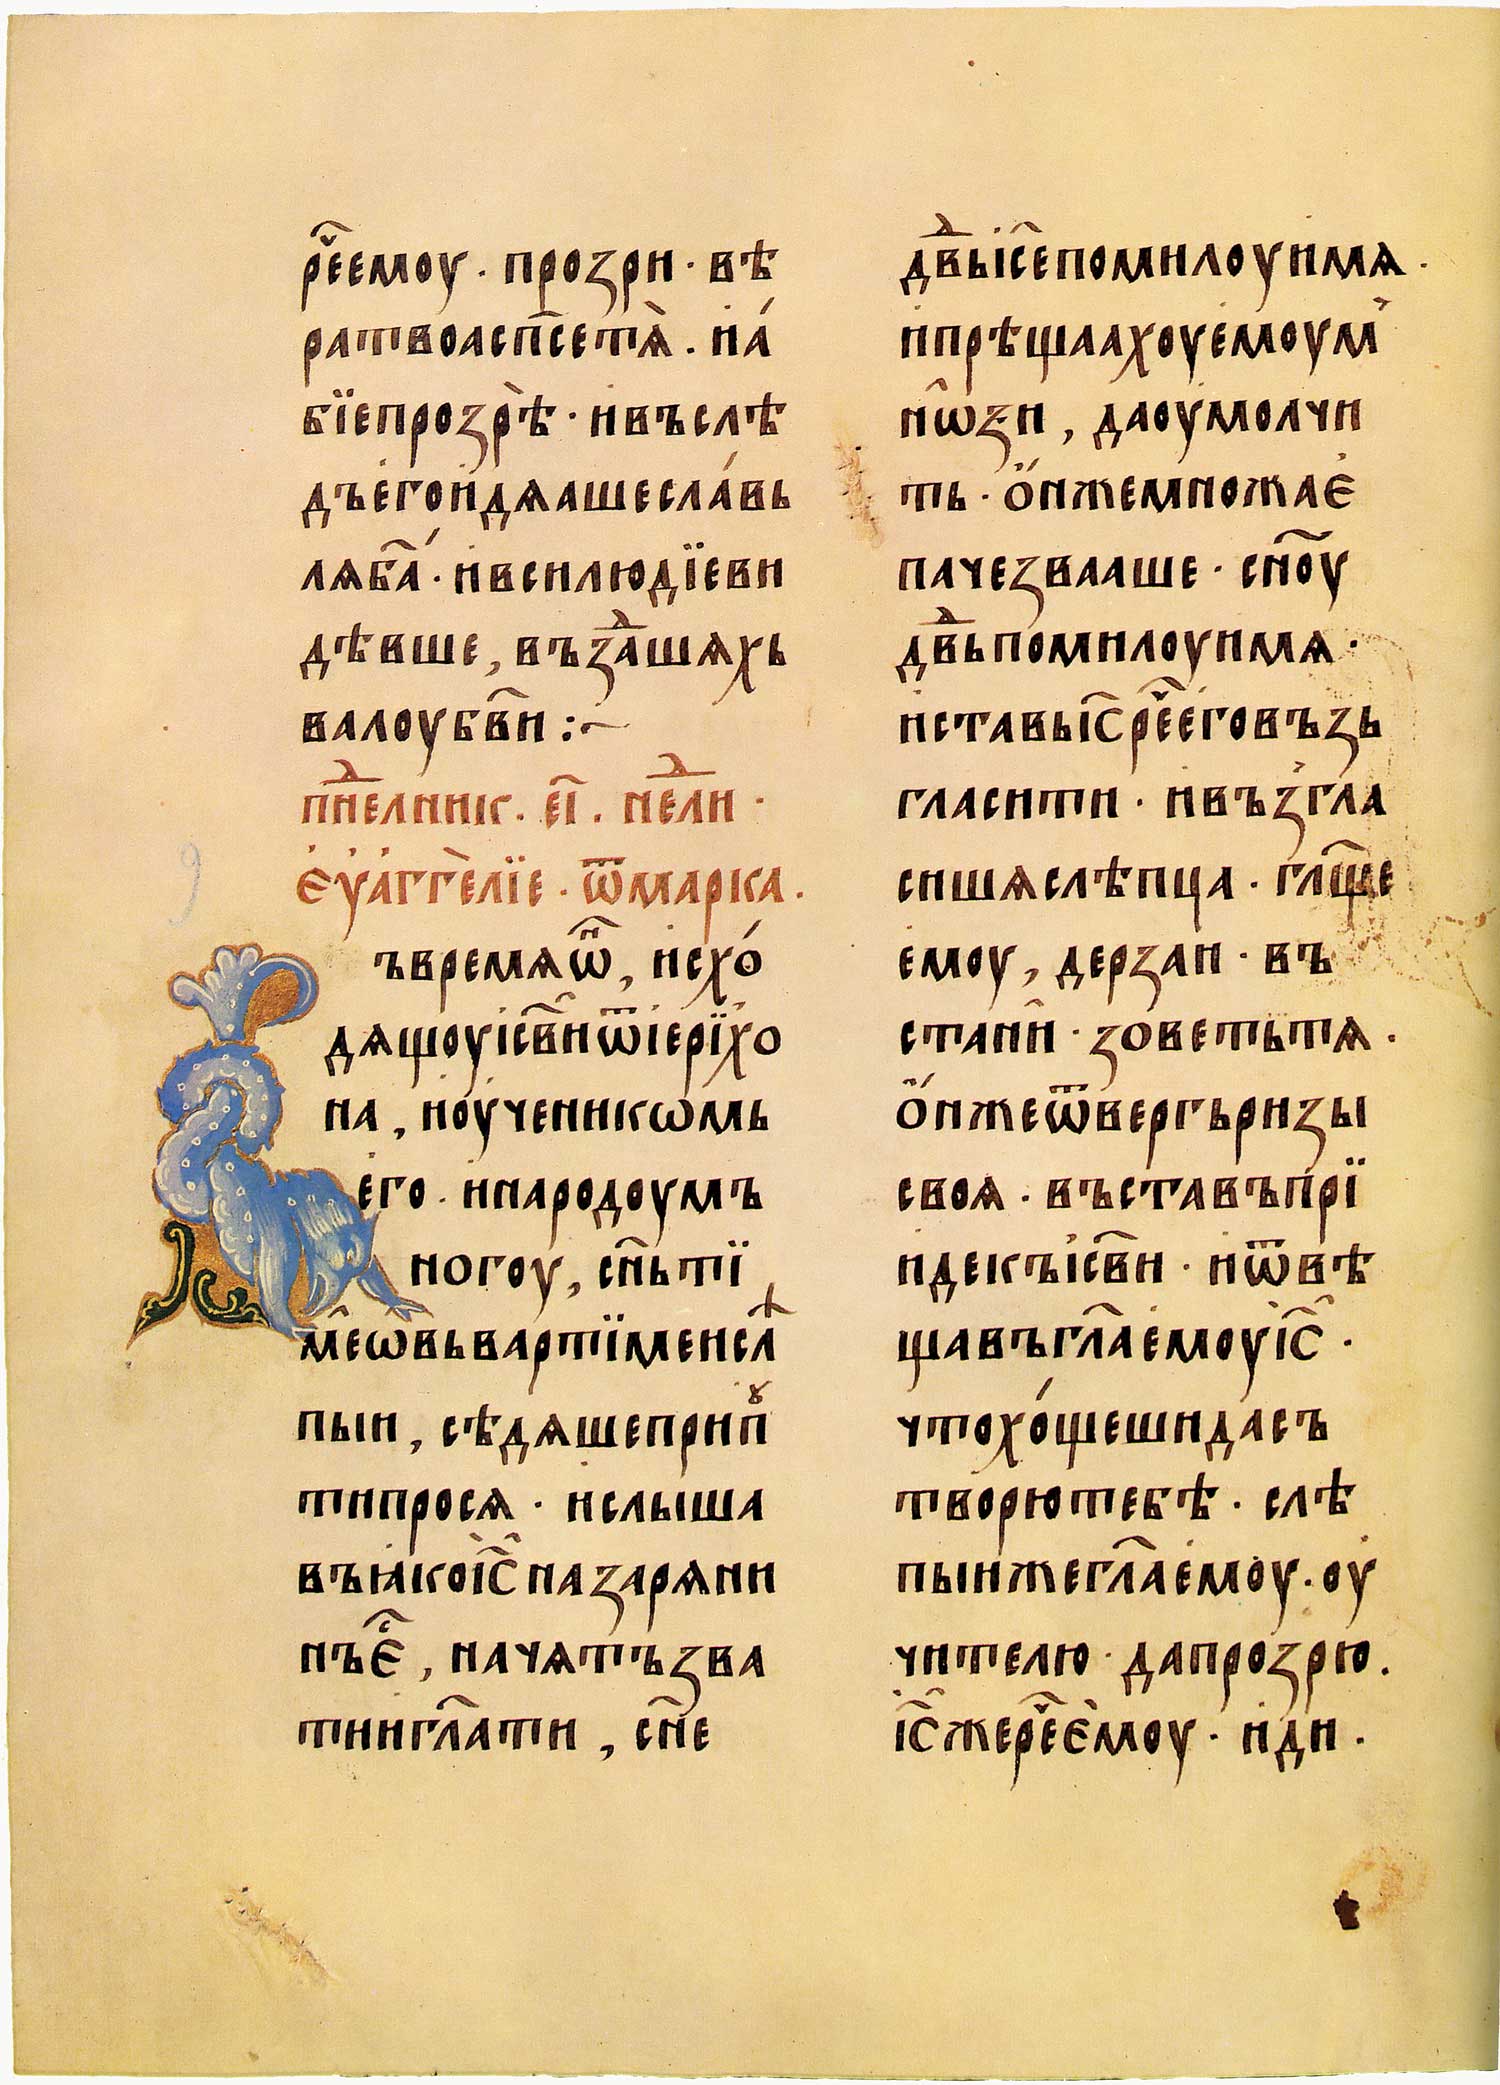 рч҃еемоу · прозри · вѣ
ра твоа сп҃сетѧ̀ · и а́
бїе прозрѣ̀ · и въ слѣ
дъ его идѧаше сла́вь
лѧ б҃а́ · и вси людїе ви
дѣвше, въздⷶашѧ хь
валоу б҃ви :~
пн҃ⷣелник · е҃і · не҃ⷣли ·
еу҆аггѐлїе · ѿ марка ·
ъ времѧ ѡ҃ⷩ, исхо́
дѧщоу іс҃ви ѿ іерїхо
на, и оученикѡмь
его · и народоумъ
ногоу, сн҃ь тї
м̑еѡвь вартїмеи слⷺ
пыи, сѣдѧше при пꙋ҆
ти просѧ · и слыша
въ ꙗко іс҃ назарѧни
нъ е҃ⷭ, начѧтъ зва
ти и гл҃ати, сн҃е
дв҃ⷣь іс҃е помилоуи мѧ ·
и прѣщаахоу емоу м
н̑ѡѕи, да оумолчи
ть · о҆́н же множае
паче зваaше · сн҃оу
дв҃ⷣь помилоуи мѧ ·
и ставь іс҃ рч҃е его възь
гласити · и възгла
сишѧ слѣпца · гл҃ще
емоу, дерзаи · въ
стан̑и · зоветь тѧ ·
о҆́н же ѿвергь ризы
своѧ · въставъ прї
иде къ іс҃ви · и ѿвѣ
щавъ гл҃а емоу іс҃ ·
что хо́щеши да съ
творю тебѣ · слѣ
пыи же гл҃а емоу · оу
чителю · да прозрю ·
іс҃ же рч҃е емоу · иди ·